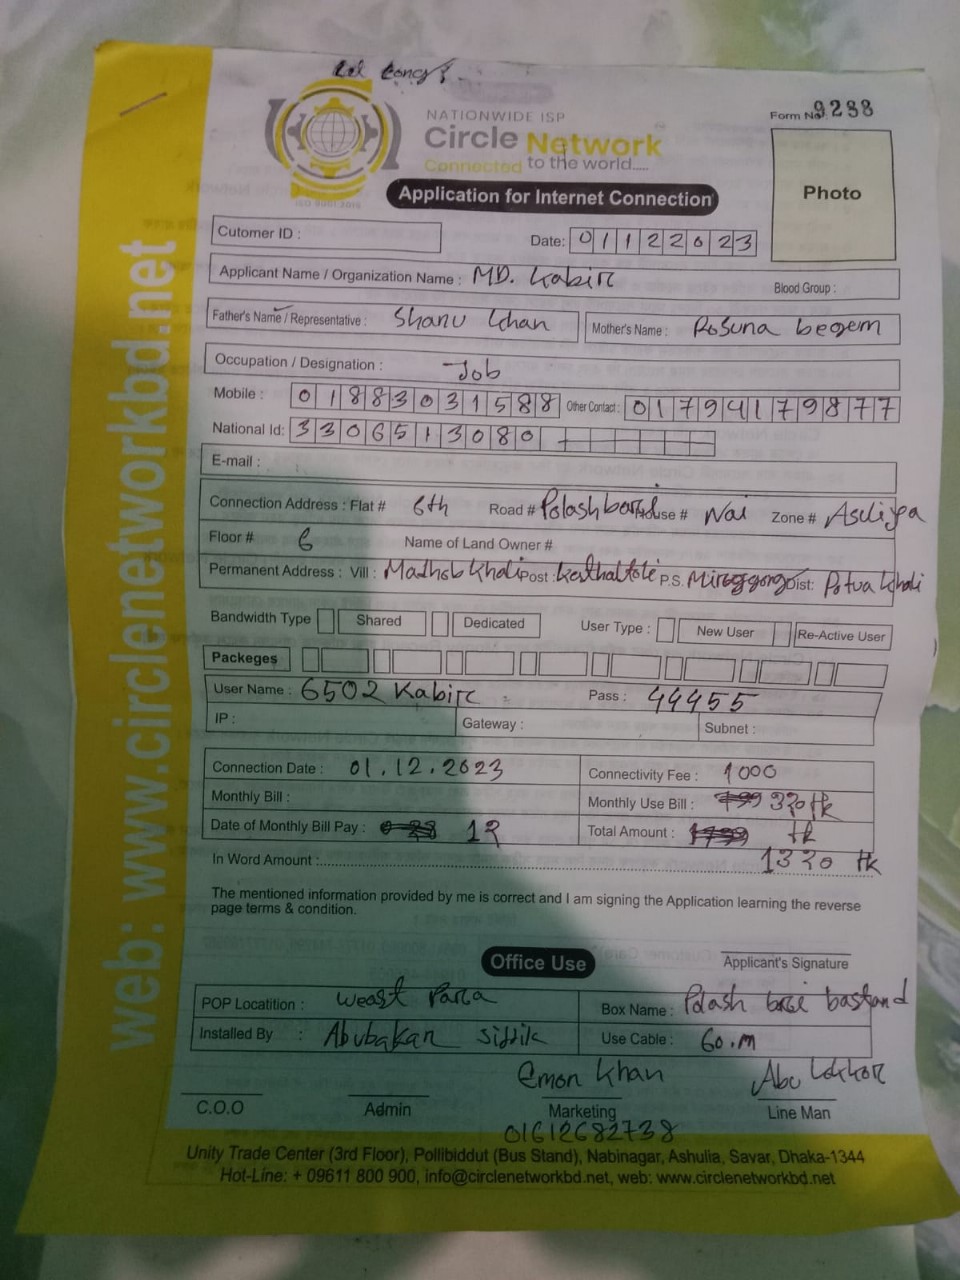 NATIONWIDE ISP
Circle Network
Connected to the world.....
ISO 9001:2015
Form No. 9288
Photo
Application for Internet Connection
web: www.circlenetworkbd.net
Cutomer ID :
Date: 01122023
Applicant Name / Organization Name : MD. Kabir
Blood Group :
Father's Name / Representative : Shanu Khan
Mother's Name : Rosuna begem
Occupation / Designation : Job
Mobile : 01883031588 Other Contact : 01794179877
National Id: 3306513080
E-mail :
Connection Address : Flat # 6th Road # Polashbari House # Nai Zone # Asuliya
Floor # 6 Name of Land Owner #
Permanent Address : Vill : Madhobkhali Post : Kathaltoli P.S. Mirzagong Dist: Potuakhali
Bandwidth Type Shared Dedicated User Type : New User Re-Active User
Packeges
User Name : 6502 Kabir Pass : 44455
IP : Gateway : Subnet :
Connection Date : 01.12.2023 Connectivity Fee : 1000
Monthly Bill : Monthly Use Bill : 799 320 tk
Date of Monthly Bill Pay : 12 Total Amount : tk
In Word Amount : 1320 tk
The mentioned information provided by me is correct and I am signing the Application learning the reverse
page terms & condition.
Applicant's Signature
Office Use
POP Locatition : weast Para Box Name : Polash bari bastand
Installed By : Abubakar Siddik Use Cable : 60.m
Emon Khan
C.O.O Admin Marketing Line Man
01612682738
Unity Trade Center (3rd Floor), Pollibiddut (Bus Stand), Nabinagar, Ashulia, Savar, Dhaka-1344
Hot-Line: + 09611 800 900, info@circlenetworkbd.net, web: www.circlenetworkbd.net